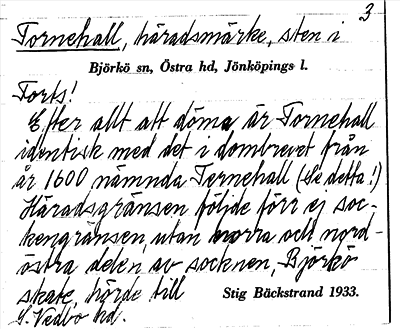 3
Tornehall, häradsmärke, sten i
Björkö sn, Östra hd, Jönköpings l.
Forts!
Efter allt att döma är Tornehall
identisk med det i dombrevet från
år 1600 nämnda Ternehall (Se detta!)
Häradsgränsen följde förr ej soc-
kengränsen, utan norra och nord-
östra delen av socknen, Björkö
skate, hörde till Stig Bäckstrand 1933.
S. Vedbo hd.